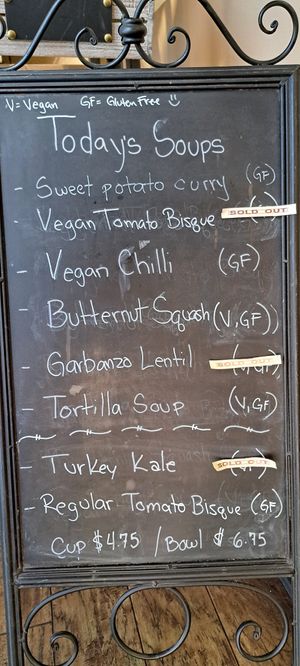 V=Vegan GF=Gluten Free
Today's Soups
- Sweet potato curry (GF)
- Vegan Tomato Bisque SOLD OUT
- Vegan Chilli (GF)
- Butternut Squash (V,GF))
- Garbanzo Lentil SOLD OUT
- Tortilla Soup (V,GF)
- Turkey Kale SOLD OUT
- Regular Tomato Bisque (GF)
Cup $4.75 / Bowl $6.75